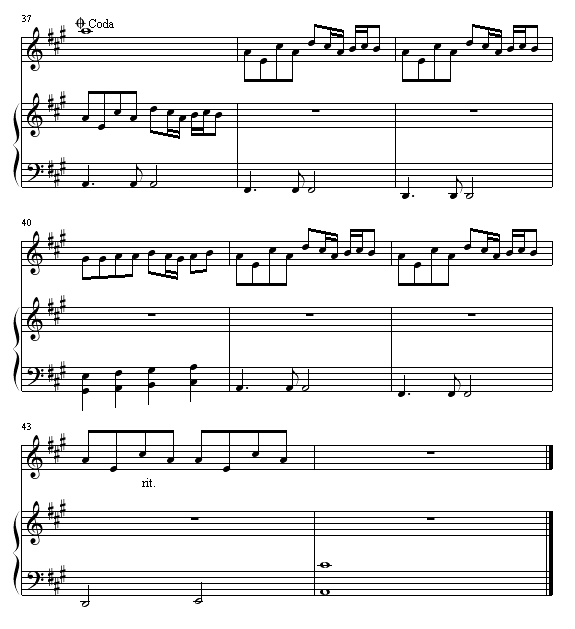 37
Coda
40
43
rit.